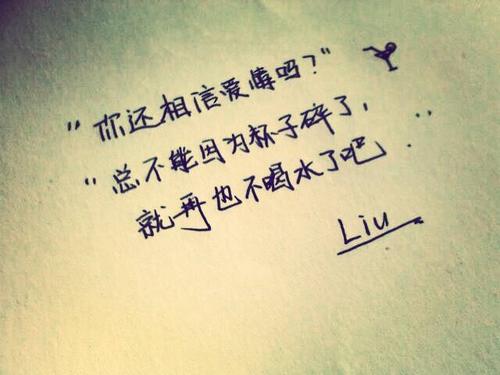 “你还相信爱情吗？”
“总不能因为杯子碎了，
就再也不喝水了吧”
Liu